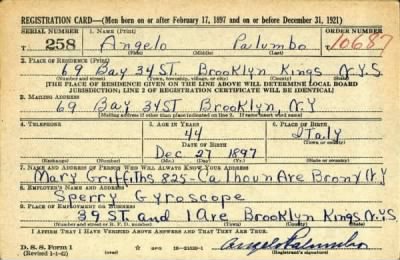 REGISTRATION CARD—(Men born on or after February 17, 1897 and on or before December 31, 1921)
SERIAL NUMBER 1. NAME (Print) ORDER NUMBER
T 258 Angelo Palumbo 10687
(First) (Middle) (Last)
2. PLACE OF RESIDENCE (Print)
69 Bay 34 ST. Brooklyn Kings N.Y.S
(Number and street) (Town, township, village, or city) (County) (State)
[THE PLACE OF RESIDENCE GIVEN ON THE LINE ABOVE WILL DETERMINE LOCAL BOARD
JURISDICTION; LINE 2 OF REGISTRATION CERTIFICATE WILL BE IDENTICAL]
3. MAILING ADDRESS
69 Bay 34 ST Brooklyn, N.Y
4. TELEPHONE 5. AGE IN YEARS 6. PLACE OF BIRTH
44 Italy
DATE OF BIRTH (Town or county)
Dec 27 1897
(Exchange) (Number) (Mo.) (Day) (Yr.) (State or country)
7. NAME AND ADDRESS OF PERSON WHO WILL ALWAYS KNOW YOUR ADDRESS
Mary Griffiths 825-Calhoun Ave Bronx N.Y
8. EMPLOYER'S NAME AND ADDRESS
Sperry Gyroscope
9. PLACE OF EMPLOYMENT OR BUSINESS
39 ST. and 1 Ave Brooklyn Kings N.Y.S
(Number and street or R. F. D. number) (Town) (County) (State)
I AFFIRM THAT I HAVE VERIFIED ABOVE ANSWERS AND THAT THEY ARE TRUE.
D. S. S. Form 1
(Revised 1-1-42) GPO Angelo Palumbo
(Registrant's signature)